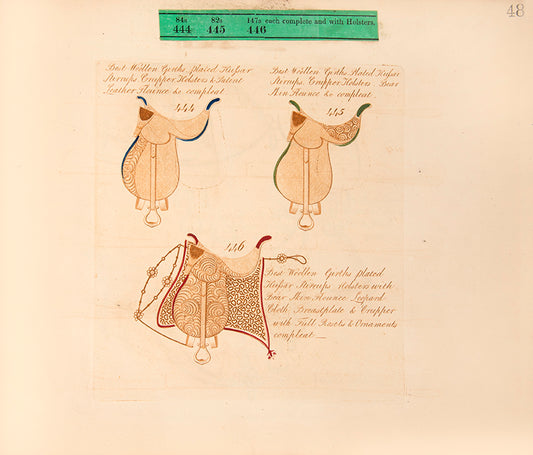 48
84s 82s 147s each complete and with Holsters.
444 445 446
Best Woollen Girths plated Hussar
Stirrups Crupper Holsters & Patent
Leather Flounce &c compleat
444
Best Woollen Girths Plated Hussar
Stirrups Crupper Holsters Bear
Skin Flounce &c compleat
445
446
Best Woollen Girths plated
Hussar Stirrups Holsters with
Bear Skin Flounce Leopard
Cloth Breastplate & Crupper
with Full Rosets & Ornaments
compleat